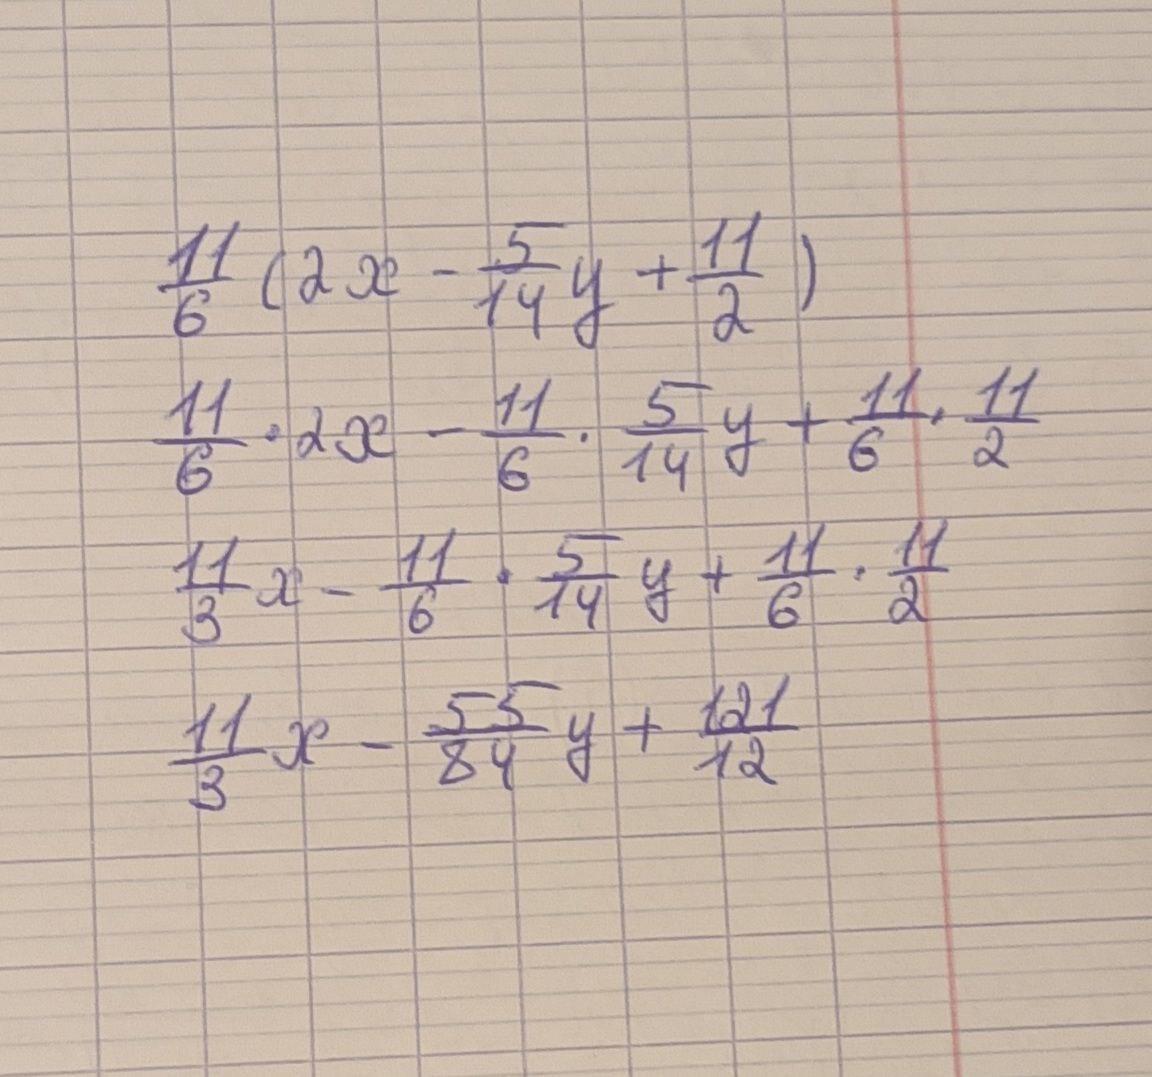 11/6 (2x - 5/14 y + 11/2)
11/6 · 2x - 11/6 · 5/14 y + 11/6 · 11/2
11/3 x - 11/6 · 5/14 y + 11/6 · 11/2
11/3 x - 55/84 y + 121/12